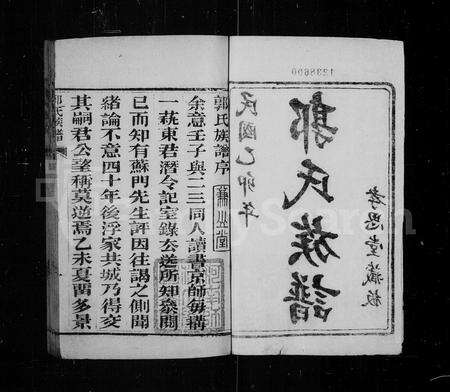 1238600
民國乙卯年
郭氏族譜
孝思堂藏板
郭氏族譜序
余意壬子與二三同人讀書京師每搆
一萟東君潛令記室錄去送所知參閱
已而知有蘇門先生評因往謁之側聞
緒論不意四十年後浮家共城乃得交
其嗣君公望稱莫逆焉乙未夏畱多景
郭氏族譜
FamilySearch